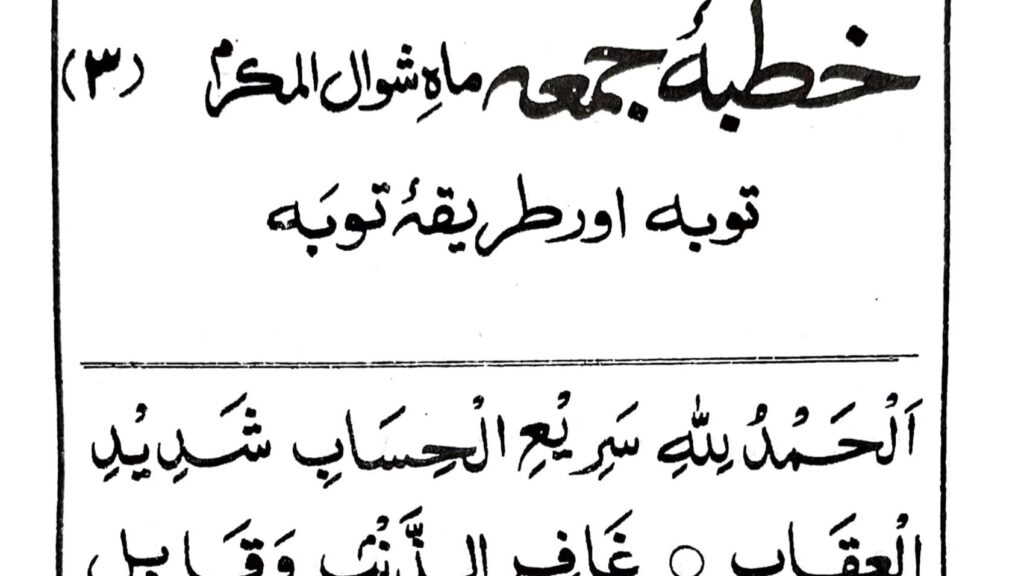 خطبۂ جمعہ ماہِ شوال المکرم (۳)
توبہ اور طریقۂ توبَہ
اَلْحَمْدُ لِلّٰهِ سَرِيْعِ الْحِسَابِ شَدِيْدِ
الْعِقَابِ ○ غَافِرِ الذَّنْۢبِ وَقَابِلِ